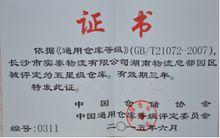 证 书
依据《通用仓库等级》(GB/T21072-2007),
长沙市实泰物流有限公司湖南物流总部园区
被评定为五星级仓库。有效期三年。
特发此证。
中 国 仓 储 协 会
中国仓库等级评定委员会
编号:0311 二〇一五年六月